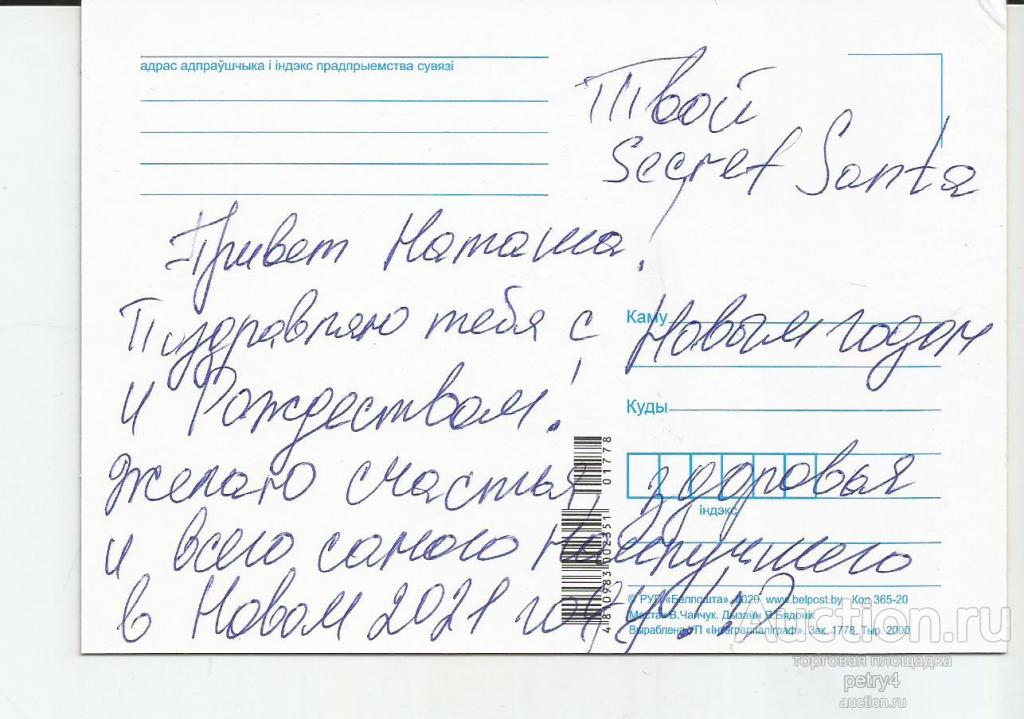 адрас адпраўшчыка і індэкс прадпрыемства сувязі
Твой
Secret Santa
Привет Наташа!
Поздравляю тебя с Новым годом
и Рождеством!
Желаю счастья, здоровья
и всего самого Наилучшего
в Новом 2021 году!!!:D
Каму
Куды
індэкс
01778
4 810983 002351
© РУП «Белпошта», 2020 www.belpost.by Кол 365-20
Мастак В.Чайчук. Дызайн
Выраблена: П «Інтэграліпаліграф». Зак. 1778. Тыр. 2000
Auction.ru
торговая площадка
petry4
auction.ru